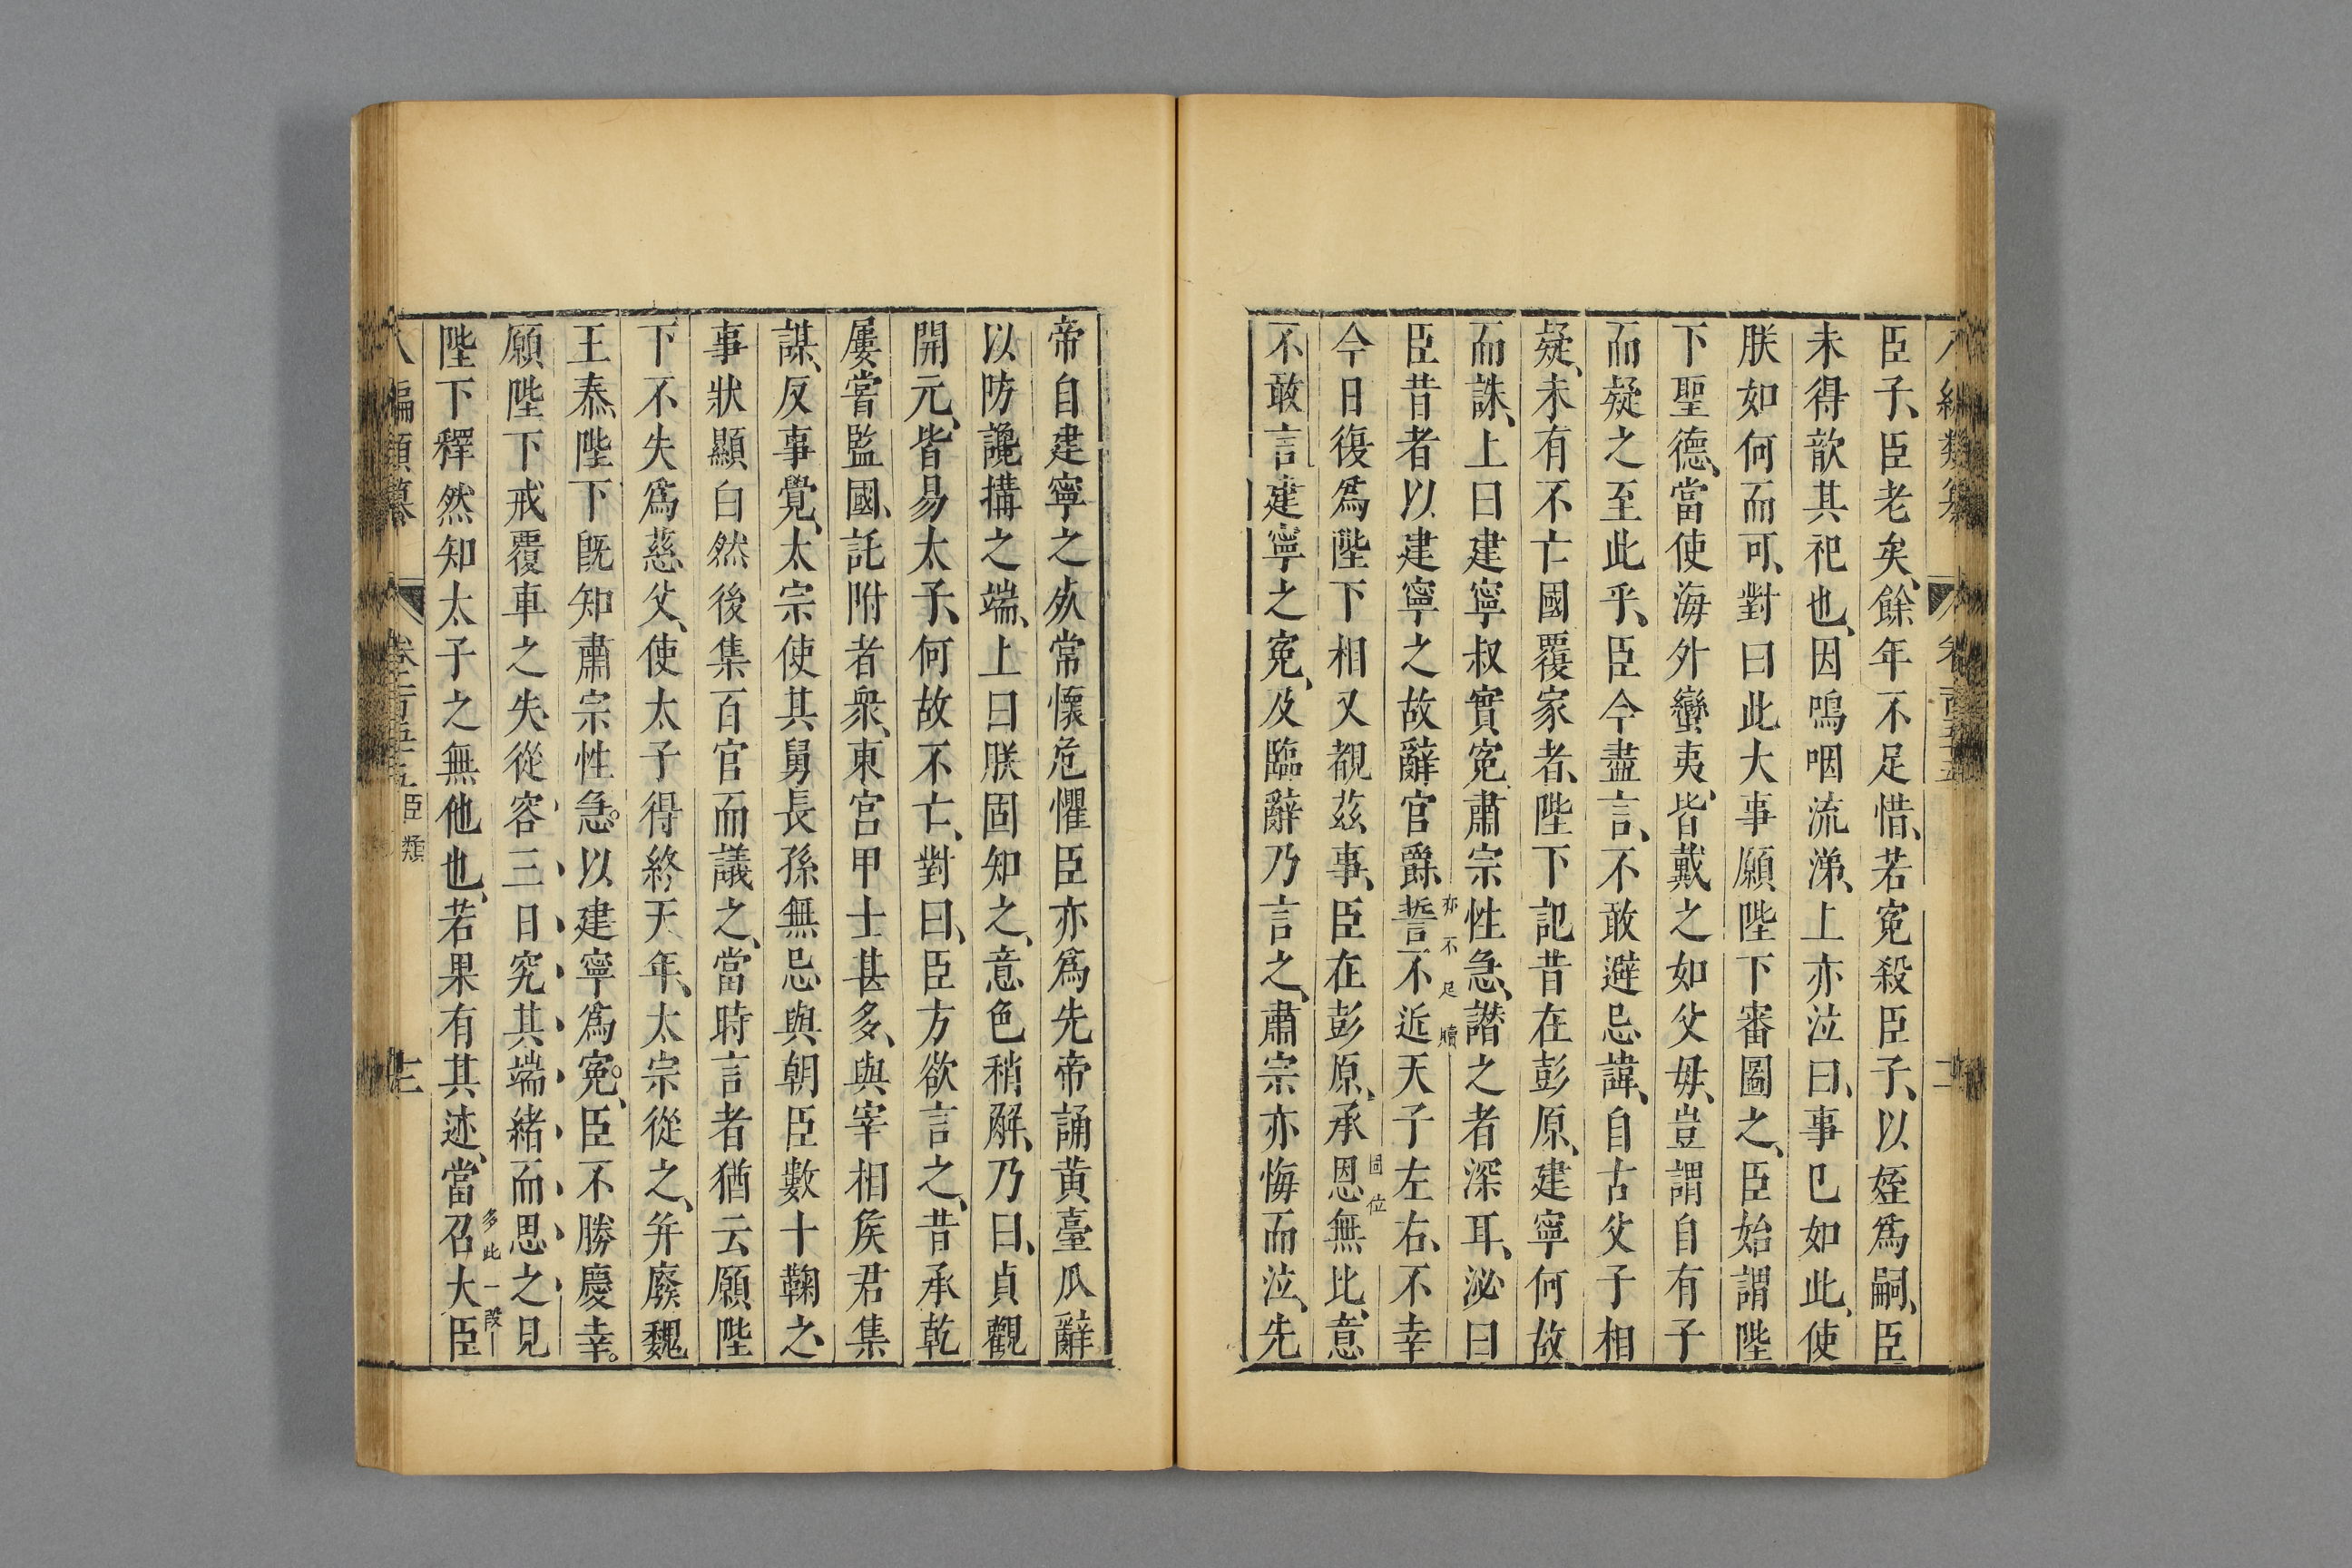 臣子、臣老矣、餘年不足惜、若寃殺臣子、以姪爲嗣、臣
未得歆其祀也、因嗚咽流涕、上亦泣曰、事已如此、使
朕如何而可、對曰此大事願陛下審圖之、臣始謂陛
下聖德、當使海外蠻夷、皆戴之如父母、豈謂自有子
而疑之至此乎、臣今盡言、不敢避忌諱、自古父子相
疑、未有不亡國覆家者、陛下記昔在彭原、建寧何故
而誅、上曰建寧叔實寃、肅宗性急、譖之者深耳、泌曰
亦不足贖
臣昔者以建寧之故辭官爵、誓不近天子左右、不幸
固位
今日復爲陛下相又覩茲事、臣在彭原、承恩無比、意
不敢言建寧之寃、及臨辭乃言之、肅宗亦悔而泣、先
帝自建寧之死常懷危懼臣亦爲先帝誦黃臺瓜辭
以防讒搆之端、上曰朕固知之、意色稍解、乃曰、貞觀
開元、皆易太子、何故不亡、對曰、臣方欲言之、昔承乾
屢嘗監國、託附者衆、東宮甲士甚多、與宰相侯君集
謀、反事覺、太宗使其舅長孫無忌與朝臣數十鞠之、
事狀顯白然後集百官而議之、當時言者猶云願陛
下不失爲慈父、使太子得終天年、太宗從之、并廢魏
王泰、陛下旣知肅宗性急。以建寧爲寃。臣不勝慶幸。
願陛下戒覆車之失、從容三日究其端緒而思之見
多此一段
陛下釋然知太子之無他也、若果有其迹、當召大臣
八編類纂 卷之一百五十五 臣類 十三